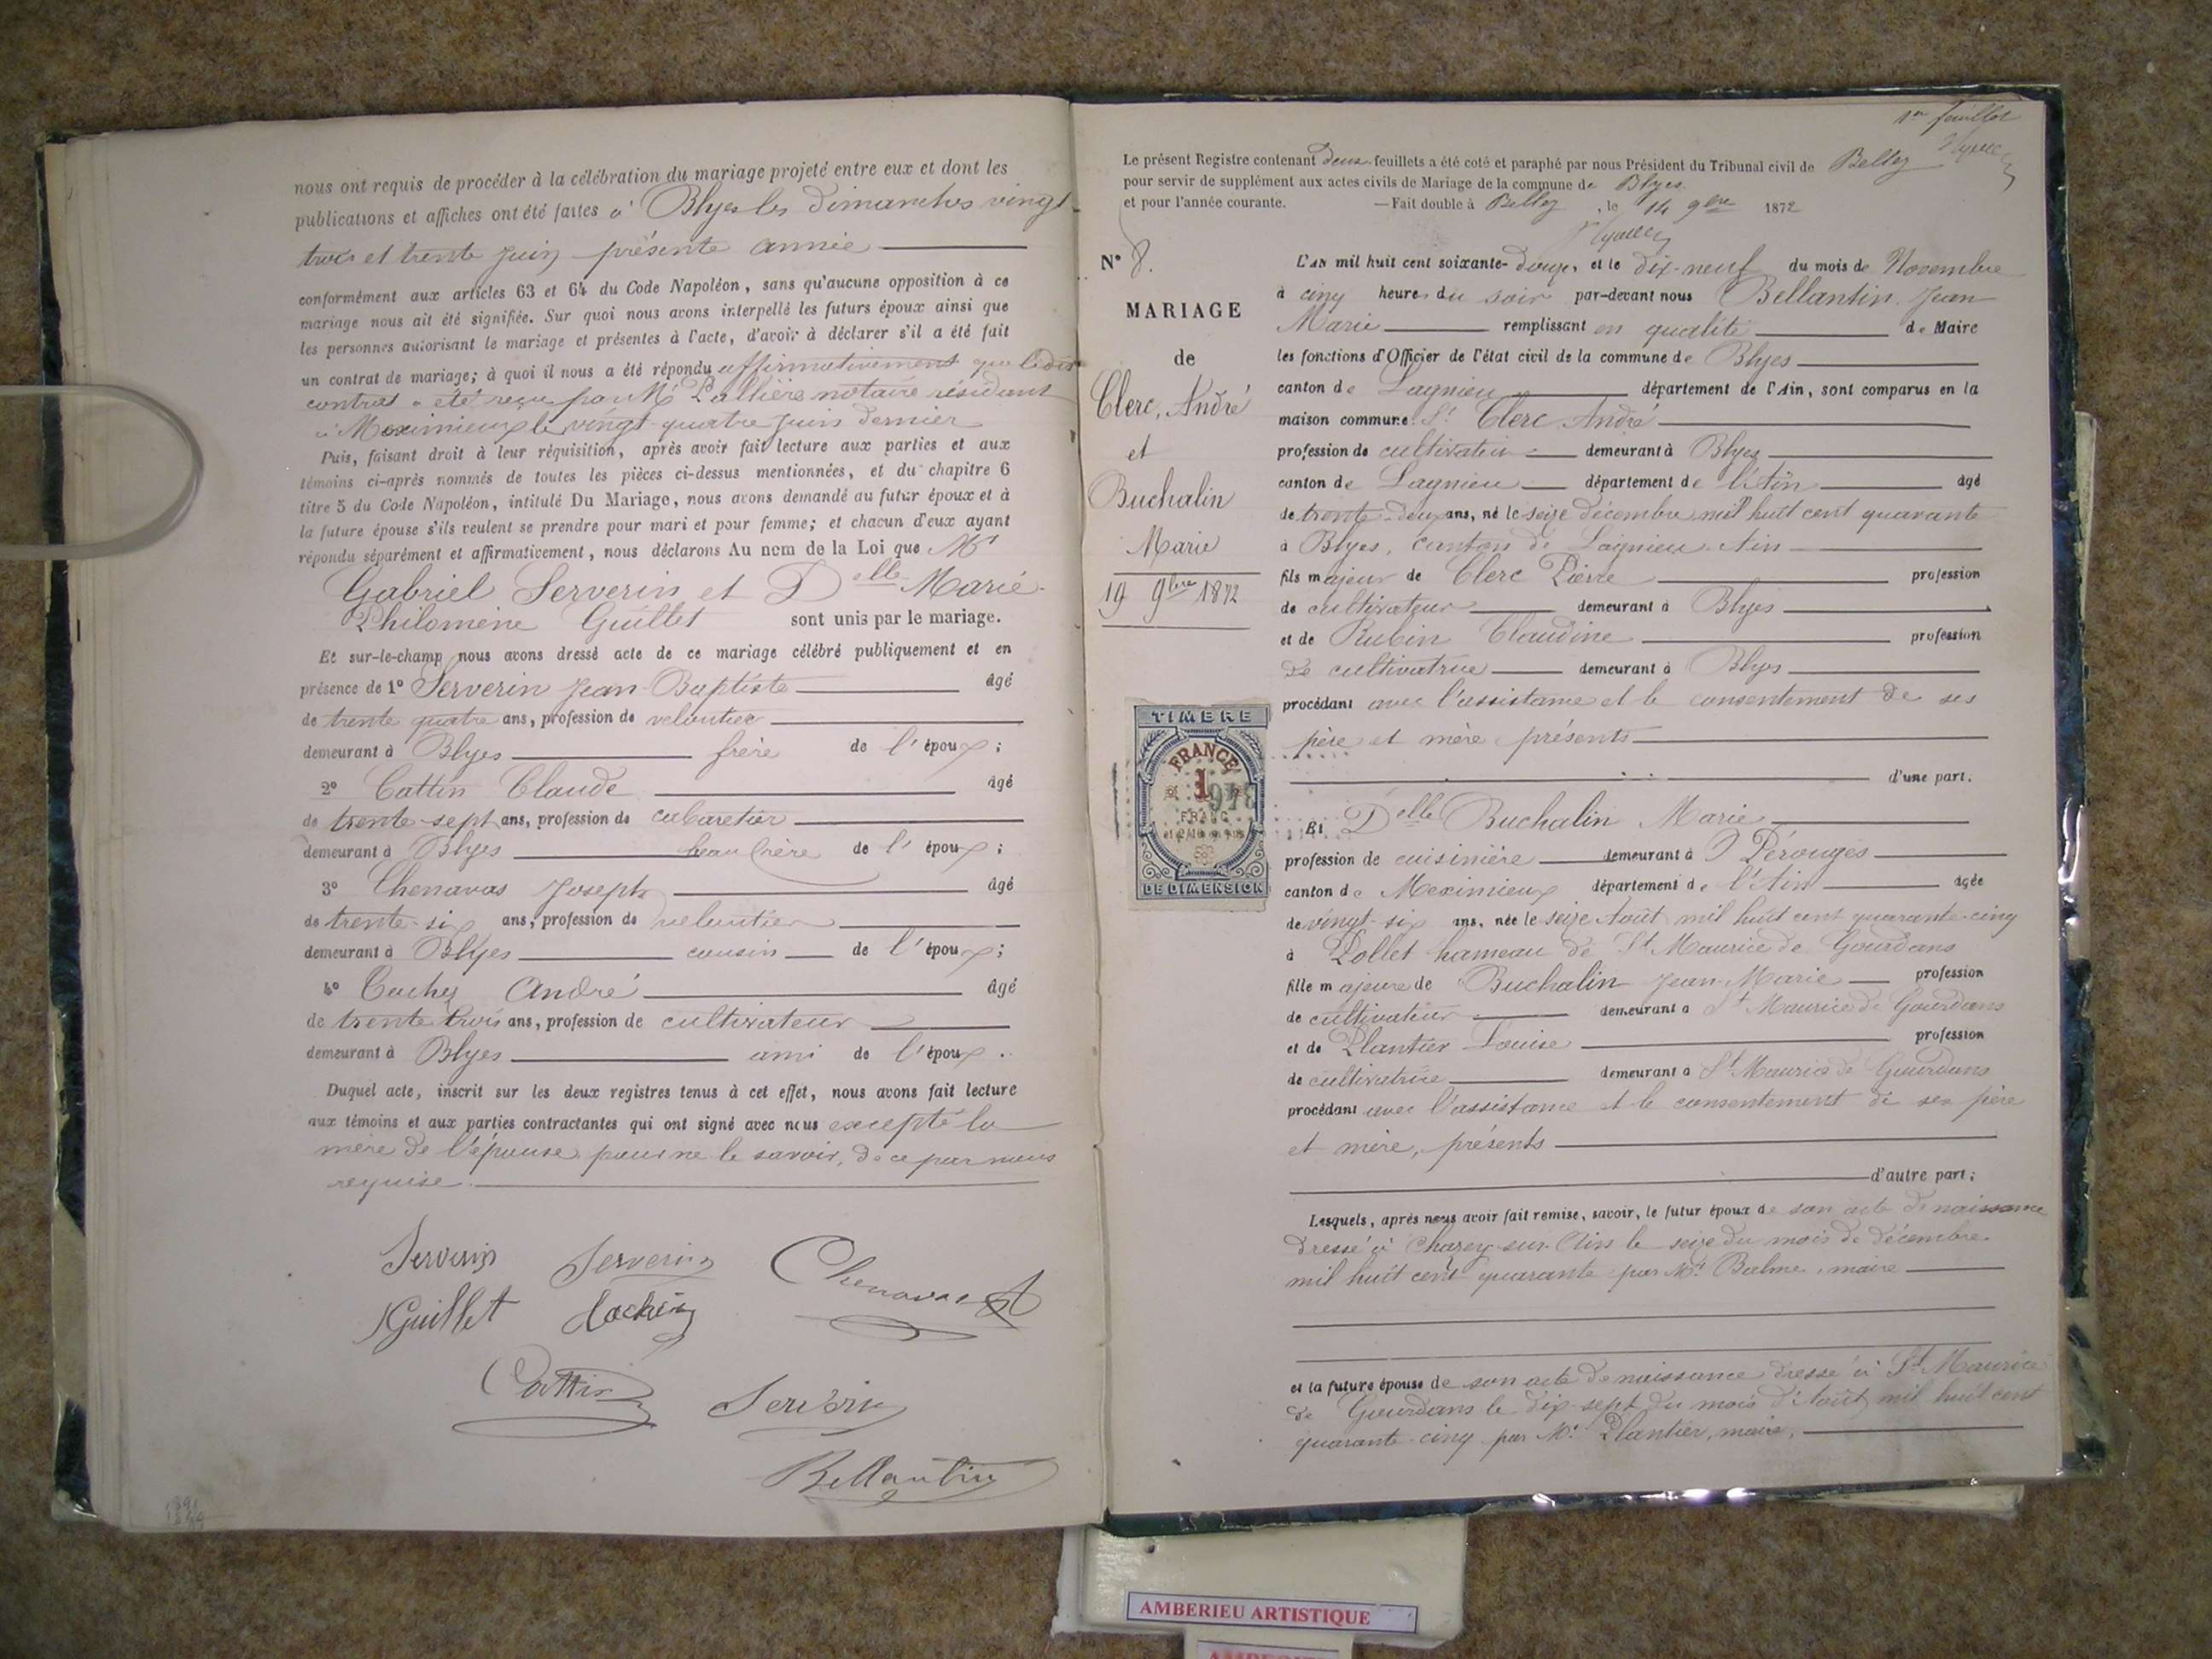 nous ont requis de procéder à la célébration du mariage projeté entre eux et dont les
publications et affiches ont été faites à Blyes les dimanches vingt
trois et trente juin présente année
conformément aux articles 63 et 64 du Code Napoléon, sans qu'aucune opposition à ce
mariage nous ait été signifiée. Sur quoi nous avons interpellé les futurs époux ainsi que
les personnes autorisant le mariage et présentes à l'acte, d'avoir à déclarer s'il a été fait
un contrat de mariage; à quoi il nous a été répondu affirmativement que ledit
contrat a été reçu par Me notaire résidant
à Meximieux le vingt-quatre juin dernier
Puis, faisant droit à leur réquisition, après avoir fait lecture aux parties et aux
témoins ci-après nommés de toutes les pièces ci-dessus mentionnées, et du chapitre 6
titre 5 du Code Napoléon, intitulé Du Mariage, nous avons demandé au futur époux et à
la future épouse s'ils veulent se prendre pour mari et pour femme; et chacun d'eux ayant
répondu séparément et affirmativement, nous déclarons Au nom de la Loi que Mr
Gabriel Serverin et Delle Marie
Philomène Guillet sont unis par le mariage.
Et sur-le-champ nous avons dressé acte de ce mariage célébré publiquement et en
présence de 1° Serverin Jean-Baptiste âgé
de trente quatre ans, profession de veloutier
demeurant à Blyes frère de l'époux;
2° Cattin Claude âgé
de trente-sept ans, profession de cabaretier
demeurant à Blyes beau frère de l'époux;
3° Chenavas Joseph âgé
de trente-six ans, profession de veloutier
demeurant à Blyes cousin de l'époux;
4° André âgé
de trente trois ans, profession de cultivateur
demeurant à Blyes ami de l'époux.
Duquel acte, inscrit sur les deux registres tenus à cet effet, nous avons fait lecture
aux témoins et aux parties contractantes qui ont signé avec nous excepté la
mère de l'épouse pour ne le savoir, de ce par nous
requise.
Serverin Serverin Chenavas
Guillet
Cattin Serverin
Bellantin
1er feuillet
Le présent Registre contenant deux feuillets a été coté et paraphé par nous Président du Tribunal civil de Belley
pour servir de supplément aux actes civils de Mariage de la commune de Blyes
et pour l'année courante. —Fait double à Belley, le 14 9bre 1872
N° 8.
MARIAGE
de
Clerc, André
et
Buchalin
Marie
19 9bre 1872
TIMBRE
FRANCE
1
FRANC
DE DIMENSION
L'AN mil huit cent soixante-douze, et le dix-neuf du mois de Novembre
à cinq heures du soir par-devant nous Bellantin Jean
Marie remplissant en qualité de Maire
les fonctions d'Officier de l'état civil de la commune de Blyes
canton de Lagnieu département de l'Ain, sont comparus en la
maison commune Sr Clerc André
profession de cultivateur demeurant à Blyes
canton de Lagnieu département de l'Ain âgé
de trente-deux ans, né le seize décembre mil huit cent quarante
à Blyes, canton de Lagnieu Ain
fils majeur de Clerc Pierre profession
de cultivateur demeurant à Blyes
et de Rubin Claudine profession
de cultivatrice demeurant à Blyes
procédant avec l'assistance et le consentement de ses
père et mère présents
d'une part.
Et Delle Buchalin Marie
profession de cuisinière demeurant à Pérouges
canton de Meximieux département de l'Ain âgée
de vingt-six ans, née le seize Août mil huit cent quarante-cinq
à Pollet hameau de St Maurice de Gourdans
fille majeure de Buchalin Jean-Marie profession
de cultivateur demeurant à St Maurice de Gourdans
et de Plantier Louise profession
de cultivatrice demeurant à St Maurice de Gourdans
procédant avec l'assistance et le consentement de ses père
et mère, présents
d'autre part;
Lesquels, après nous avoir fait remise, savoir, le futur époux de son acte de naissance
dressé à Chazey-sur-Ain le seize du mois de décembre
mil huit cent quarante par Mr Balme, maire
et la future épouse de son acte de naissance dressé à St Maurice
de Gourdans le dix-sept du mois d'Août mil huit cent
quarante-cinq par Mr Plantier, maire,
AMBERIEU ARTISTIQUE